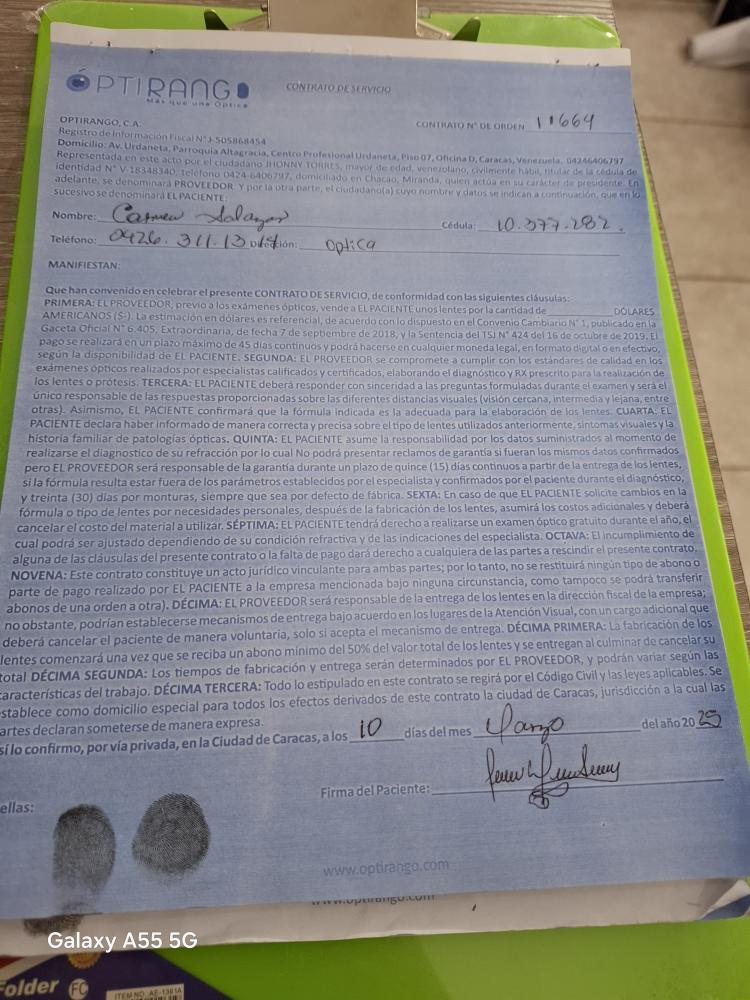 ÓPTIRANGO
Más que una Óptica
CONTRATO DE SERVICIO
OPTIRANGO, C.A.
CONTRATO N° DE ORDEN 11664
Registro de Información Fiscal N° J-505868454
Domicilio: Av. Urdaneta, Parroquia Altagracia, Centro Profesional Urdaneta, Piso 07, Oficina D, Caracas, Venezuela. 04246406797
Representada en este acto por el ciudadano JHONNY TORRES, mayor de edad, venezolano, civilmente hábil, titular de la cédula de
identidad N° V-18348340, teléfono 0424-6406797, domiciliado en Chacao, Miranda, quien actúa en su carácter de presidente. En
adelante, se denominará PROVEEDOR. Y por la otra parte, el ciudadano(a) cuyo nombre y datos se indican a continuación, que en lo
sucesivo se denominará EL PACIENTE:
Nombre: Carmen Salazar Cédula: 10.377.282.
Teléfono: 0426.311.13 Dirección: optica
MANIFIESTAN:
Que han convenido en celebrar el presente CONTRATO DE SERVICIO, de conformidad con las siguientes cláusulas:
PRIMERA: EL PROVEEDOR, previo a los exámenes ópticos, vende a EL PACIENTE unos lentes por la cantidad de ________ DÓLARES
AMERICANOS ($-). La estimación en dólares es referencial, de acuerdo con lo dispuesto en el Convenio Cambiario N° 1, publicado en la
Gaceta Oficial N° 6.405, Extraordinaria, de fecha 7 de septiembre de 2018, y la sentencia del TSJ N° 424 del 16 de octubre de 2019. El
pago se realizará en un plazo máximo de 45 días continuos y podrá hacerse en cualquier moneda legal, en formato digital o en efectivo,
según la disponibilidad de EL PACIENTE. SEGUNDA: EL PROVEEDOR se compromete a cumplir con los estándares de calidad en los
exámenes ópticos realizados por especialistas calificados y certificados, elaborando el diagnóstico y RX prescrito para la realización de
los lentes o prótesis. TERCERA: EL PACIENTE deberá responder con sinceridad a las preguntas formuladas durante el examen y será el
único responsable de las respuestas proporcionadas sobre las diferentes distancias visuales (visión cercana, intermedia y lejana, entre
otras). Asimismo, EL PACIENTE confirmará que la fórmula indicada es la adecuada para la elaboración de los lentes. CUARTA: EL
PACIENTE declara haber informado de manera correcta y precisa sobre el tipo de lentes utilizados anteriormente, síntomas visuales y la
historia familiar de patologías ópticas. QUINTA: EL PACIENTE asume la responsabilidad por los datos suministrados al momento de
realizarse el diagnostico de su refracción por lo cual No podrá presentar reclamos de garantía si fueran los mismos datos confirmados
pero EL PROVEEDOR será responsable de la garantía durante un plazo de quince (15) días continuos a partir de la entrega de los lentes,
si la fórmula resulta estar fuera de los parámetros establecidos por el especialista y confirmados por el paciente durante el diagnóstico,
y treinta (30) días por monturas, siempre que sea por defecto de fábrica. SEXTA: En caso de que EL PACIENTE solicite cambios en la
fórmula o tipo de lentes por necesidades personales, después de la fabricación de los lentes, asumirá los costos adicionales y deberá
cancelar el costo del material a utilizar. SÉPTIMA: EL PACIENTE tendrá derecho a realizarse un examen óptico gratuito durante el año, el
cual podrá ser ajustado dependiendo de su condición refractiva y de las indicaciones del especialista. OCTAVA: El incumplimiento de
alguna de las cláusulas del presente contrato o la falta de pago dará derecho a cualquiera de las partes a rescindir el presente contrato.
NOVENA: Este contrato constituye un acto jurídico vinculante para ambas partes; por lo tanto, no se restituirá ningún tipo de abono o
parte de pago realizado por EL PACIENTE a la empresa mencionada bajo ninguna circunstancia, como tampoco se podrá transferir
abonos de una orden a otra). DÉCIMA: EL PROVEEDOR será responsable de la entrega de los lentes en la dirección fiscal de la empresa;
no obstante, podrían establecerse mecanismos de entrega bajo acuerdo en los lugares de la Atención Visual, con un cargo adicional que
deberá cancelar el paciente de manera voluntaria, solo si acepta el mecanismo de entrega. DÉCIMA PRIMERA: La fabricación de los
lentes comenzará una vez que se reciba un abono mínimo del 50% del valor total de los lentes y se entregan al culminar de cancelar su
total DÉCIMA SEGUNDA: Los tiempos de fabricación y entrega serán determinados por EL PROVEEDOR, y podrán variar según las
características del trabajo. DÉCIMA TERCERA: Todo lo estipulado en este contrato se regirá por el Código Civil y las leyes aplicables. Se
establece como domicilio especial para todos los efectos derivados de este contrato la ciudad de Caracas, jurisdicción a la cual las
artes declaran someterse de manera expresa.
sí lo confirmo, por vía privada, en la Ciudad de Caracas, a los 10 días del mes Marzo del año 2025
Firma del Paciente:
ellas:
www.optirango.com
www.optirango.com
Galaxy A55 5G
Folder FC
ITEM NO. AE-1361A